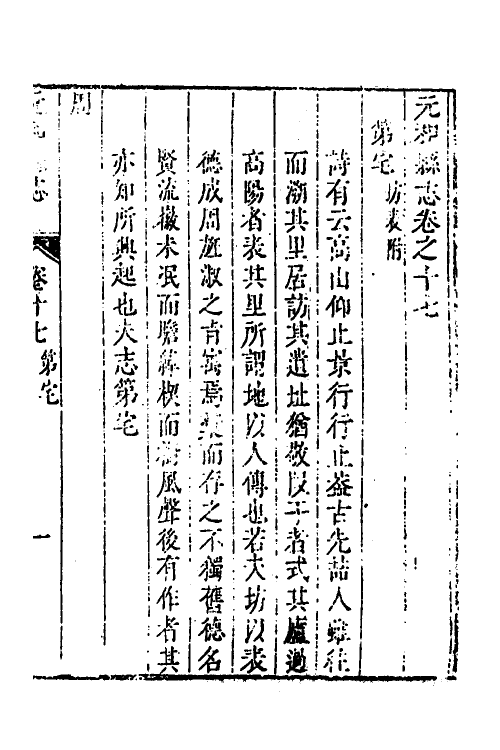 元和縣志卷之十七
第宅 坊表附
詩有云高山仰止景行行止蓋古先喆人雖往
而溯其里居訪其遺址猶敬以干者式其廬過
高陽者表其里所謂地以人傳也若夫坊以表
德成周旌淑之吉寓焉業而存之不獨舊德名
賢流徽未泯而瞻棹楔而樹風聲後有作者其
亦知所興起也夫志第宅
周
志 卷十七 第宅 一